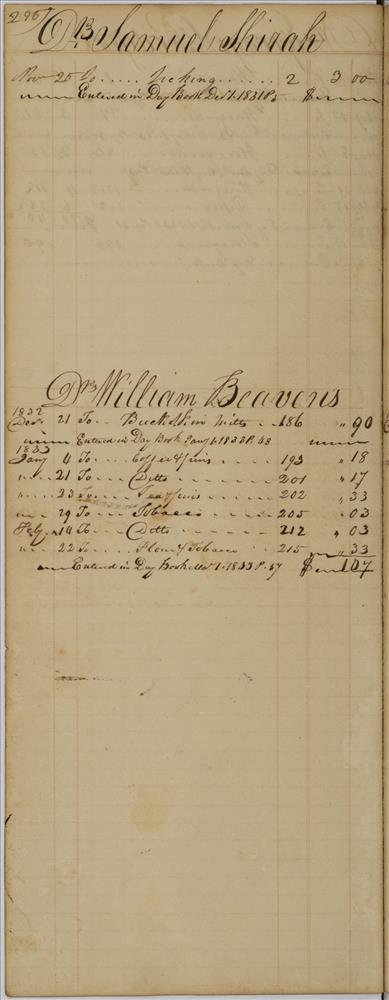 296
Dr Samuel Shirah
Nov 25 To ..... ..... 2 3 00
Entered in Day Book Decr 1. 1831 P. 5 $
Dr William Beavens
1832
Decr 21 To .. Buckskin Mitts .. 186 " 90
Entered in Day Book Jany 1. 1833 P. 48
1833
Jany 4 To ... Coffee & .... 193 " 18
" 21 To ... Ditto .... 201 " 17
" 23 To ... Tea & .... 202 " 33
" 29 To .... Tobacco .... 205 " 03
Feby 14 To ... Ditto .... 212 " 03
" 22 To .... Flour & Tobacco ... 215 " 33
Entered in Day Book Mar 1. 1833 P. 57 $ 107